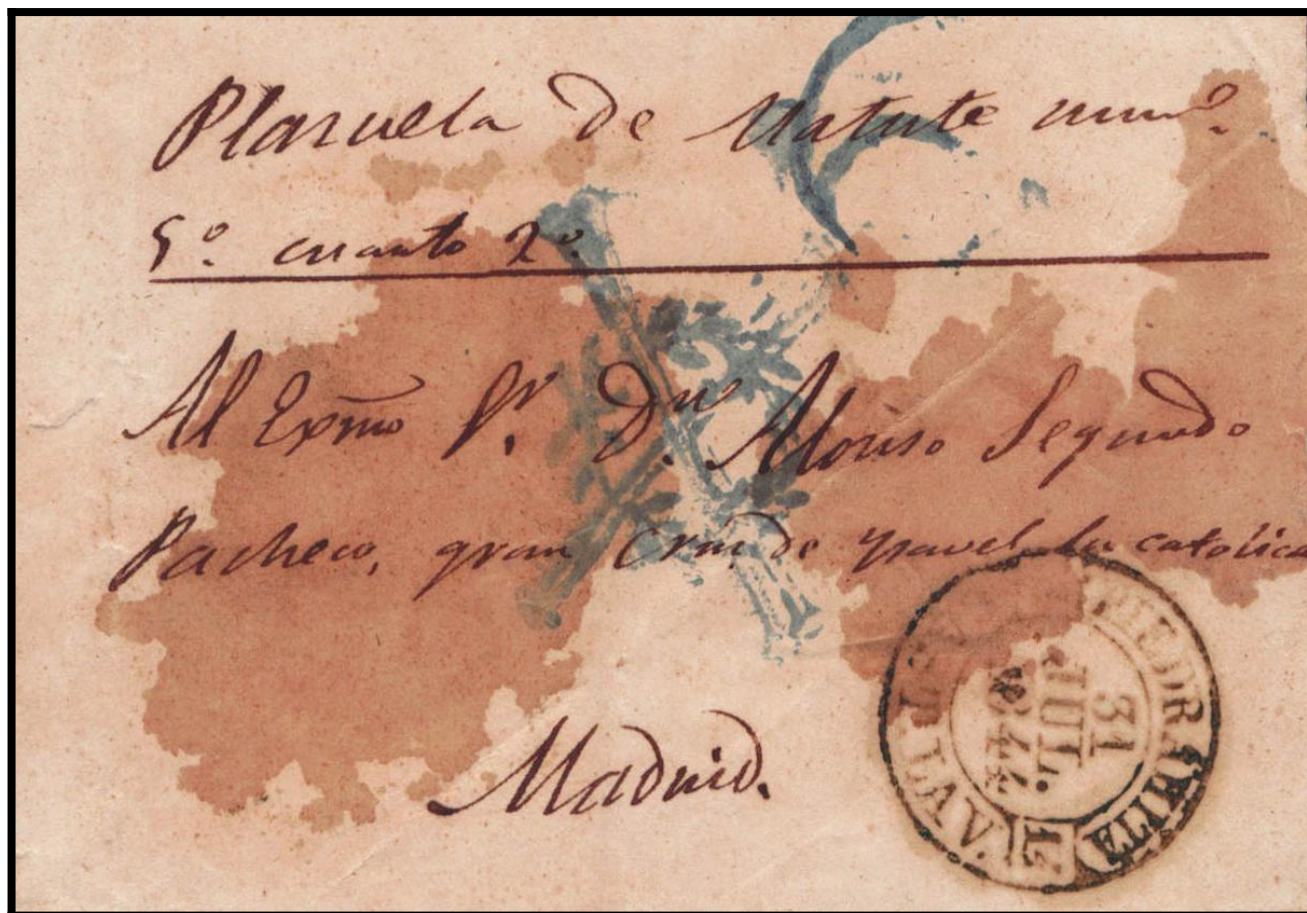 Plazuela de Matute num.º
5º. cuarto 2º.
Al Exmo Sr. Dn. Alonso Segundo
Pacheco, gran Cruz de Ysavel la catolica
Madrid.
PIEDRAHITA
31
JUL.
1844
LA V.
17